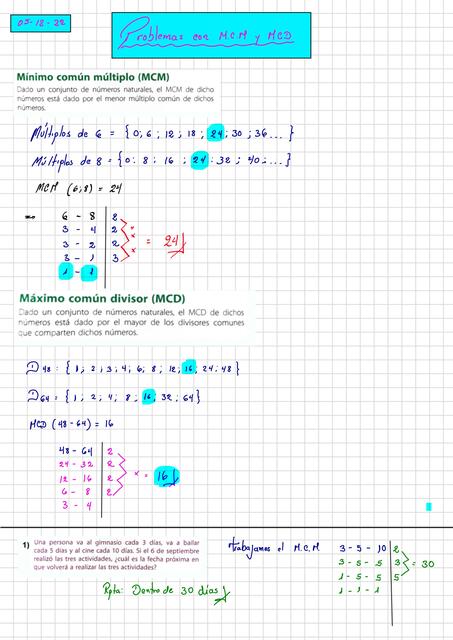 05-12-22
Problemas con M.C.M y MCD
Mínimo común múltiplo (MCM)
Dado un conjunto de números naturales, el MCM de dicho
números está dado por el menor múltiplo común de dichos
números.
Múltiplos de 6 = {0; 6; 12; 18; 24; 30; 36... }
Múltiplos de 8 = {0; 8; 16; 24; 32; 40; ... }
MCM (6;8) = 24
6 - 8 | 2
3 - 4 | 2
3 - 2 | 2
3 - 1 | 3
1 - 1
x
x
x
= 24
Máximo común divisor (MCD)
Dado un conjunto de números naturales, el MCD de dichos
números está dado por el mayor de los divisores comunes
que comparten dichos números.
D 48 : { 1; 2; 3; 4; 6; 8; 12; 16; 24; 48}
D 64 = { 1; 2; 4; 8; 16; 32; 64}
MCD (48-64) = 16
48 - 64 | 2
24 - 32 | 2
12 - 16 | 2
6 - 8 | 2
3 - 4
x = 16
1) Una persona va al gimnasio cada 3 días, va a bailar
cada 5 días y al cine cada 10 días. Si el 6 de septiembre
realizó las tres actividades, ¿cuál es la fecha próxima en
que volverá a realizar las tres actividades?
Rpta: Dentro de 30 días
trabajamos el M.C.M
3 - 5 - 10 | 2
3 - 5 - 5 | 3
1 - 5 - 5 | 5
1 - 1 - 1
= 30